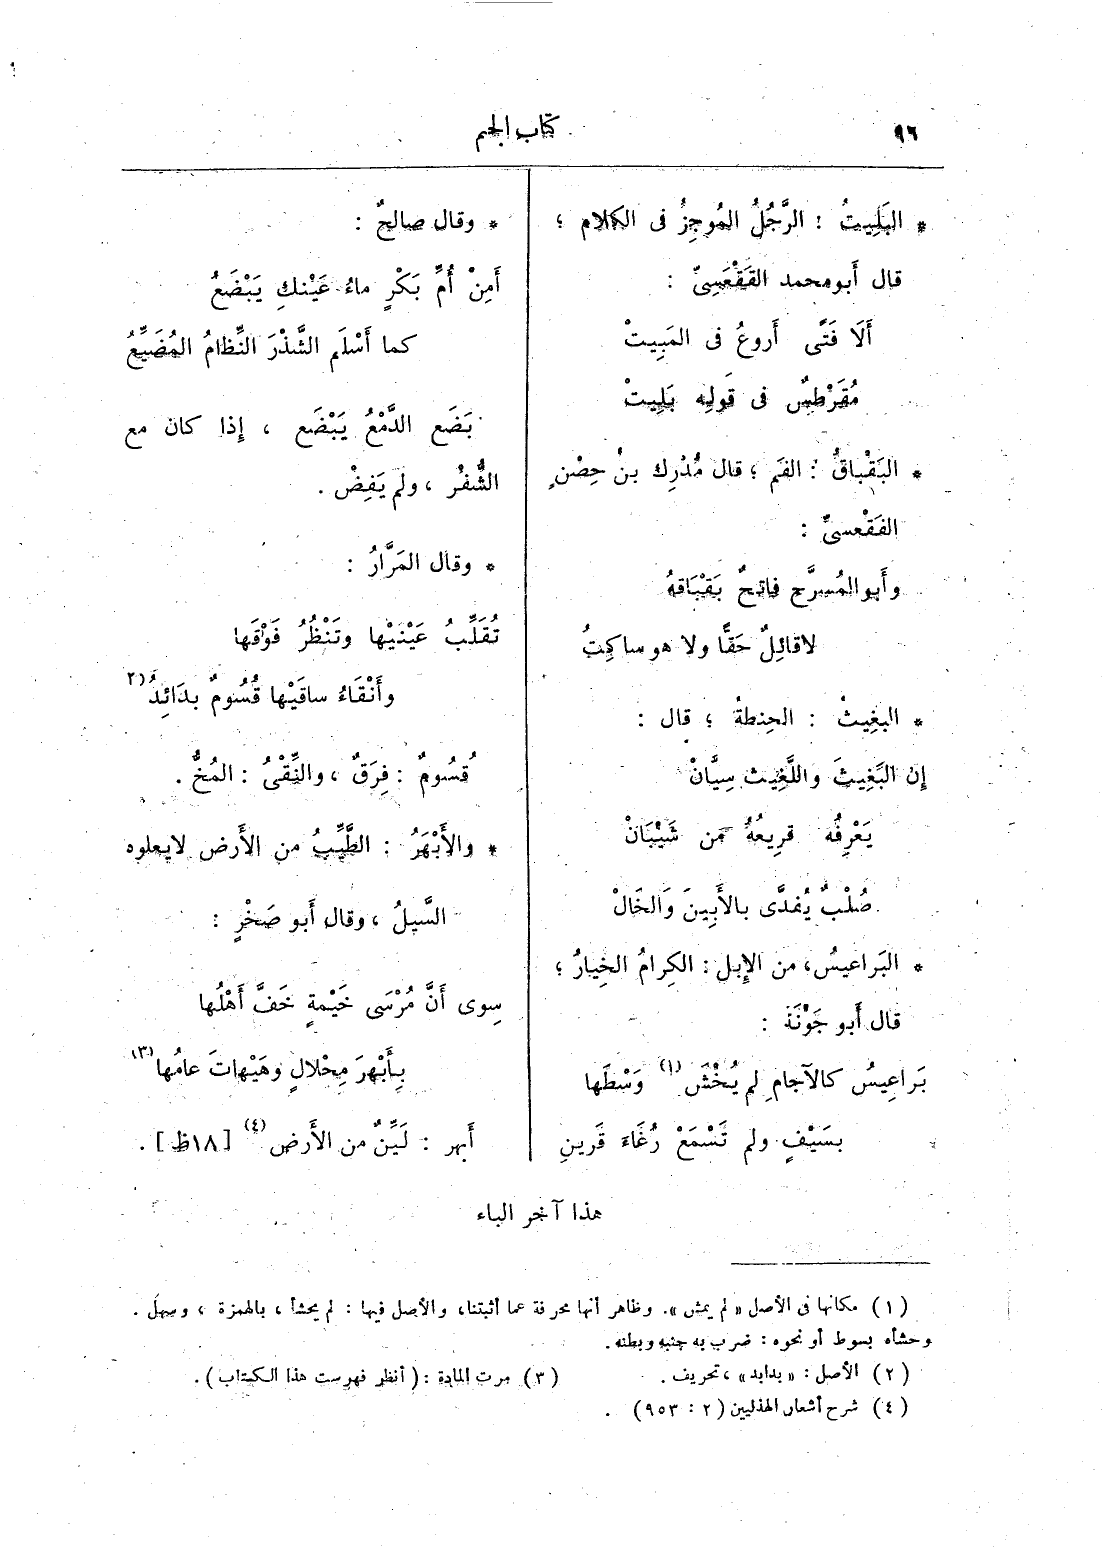 ٩٦
كتاب الجيم
* البَلِيتُ : الرَّجُلُ المُوجِزُ فى الكلام ؛
قال أَبو محمد الفَقْعَسِىّ :
أَلَا فَتًى أَروعُ فى المَبِيتْ
مُقَرْطِسٌ فى قَولِه بَلِيتْ
* البَقْباقُ : الفَم ؛ قال مُدْرِك بنُ حِصْنٍ
الفَقْعسىّ :
وأَبو المُسرَّحِ فاتحٌ بَقْبَاقهُ
لا قائِلٌ حَقًّا ولا هو ساكِتُ
* البغِيثْ : الحِنطةْ ؛ قال :
إن البَغِيثَ واللَّغِيث سِيَّانْ
يَعْرِفُه قريعُهُ من شَيْبَانْ
صُلْبٌ يُفدَّى بالأَبِينَ وَالخَالْ
* البَراعيسُ، من الإبل : الكِرامُ الخِيارُ ؛
قال أَبو جَوْنَة :
بَراعِيسُ كالآجامِ لم يُخْشَ (١) وَسْطَها
بسَيْفٍ ولم تَسْمَعْ رُغَاءَ قَرينِ
* وقال صالحٌ :
أَمِنْ أُمِّ بَكْرٍ ماءُ عَيْنكِ يَبْضَعُ
كما أَسْلَم الشَّذْرَ النِّظامُ المُضَيِّعُ
بَضَع الدَّمْعُ يَبْضَع ، إذا كان مع
الشُّفْرُ ، ولم يَفِضْ .
* وقال المَرَّارُ :
تُقَلِّبُ عَيْنَيْها وتَنْظُرُ فَوْقَها
وأَنْقَاءُ ساقَيْها قُسُومٌ بدَائِدُ (٢
قُسُومٌ : فِرَقٌ ، والنِّقْىُ : المُخُّ .
* والأَبْهَرُ : الطَّيِّبُ من الأَرض لا يعلوه
السَّيلُ ، وقال أَبو صَخْرٍ :
سِوى أَنَّ مُرْسَى خَيْمةٍ خَفَّ أَهْلُها
بِأَبْهرَ مِحْلالٍ وهَيْهاتَ عامُها (٣)
أَبهر : لَيِّنٌ من الأَرض (٤) [١٨ظ] .
هذا آخر الباء
(١) مكانها فى الأصل « لم يمش ». وظاهر أنها محرفة عما أثبتنا، والأصل فيها : لم يحشأ ، بالهمزة ، وسهل .
وحشأه بسوط أو نحوه : ضرب به جنبه وبطنه .
(٢) الأصل : « بدابد » ، تحريف .
(٣) مرت المادة : (أنظر فهرست هذا الكتاب) .
(٤) شرح أشعار الهذليين (٢ : ٩٥٣) .